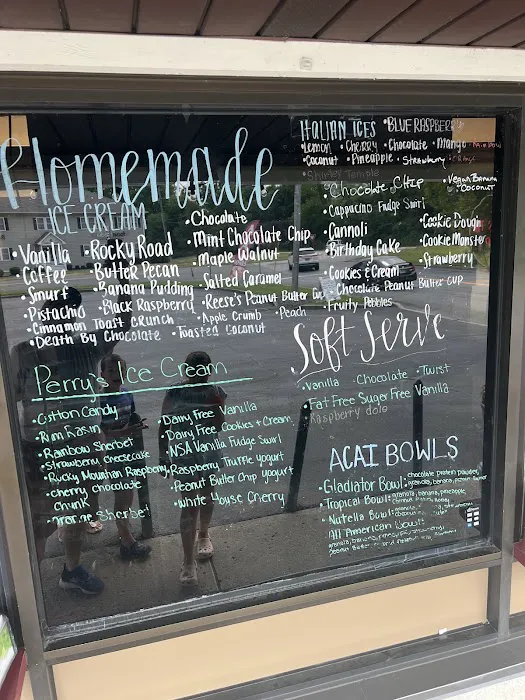 Homemade
ICE CREAM
• Vanilla
• Coffee
• Smurf
• Pistachio
• Cinnamon Toast Crunch
• Death By Chocolate
• Rocky Road
• Butter Pecan
• Banana Pudding
• Black Raspberry
• Toasted Coconut
• Chocolate
• Mint Chocolate Chip
• Maple Walnut
• Salted Caramel
• Reese's Peanut Butter Cup
• Apple Crumb
• Peach
ITALIAN ICES • BLUE RASPBERRY
• Lemon • Cherry • Chocolate • Mango
• Coconut • Pineapple • Strawberry
• Shirley Temple
• Chocolate Chip
• Cappucino Fudge Swirl
• Cannoli
• Birthday Cake
• Cookies & Cream
• Chocolate Peanut Butter Cup
• Fruity Pebbles
• Vegan Banana
• Coconut
• Cookie Dough
• Cookie Monster
• Strawberry
Soft Serve
• Vanilla • Chocolate • Twist
• Fat Free Sugar Free Vanilla
Raspberry dole
Perry's Ice Cream
• Cotton Candy
• Rum Rasin
• Rainbow Sherbet
• Strawberry cheesecake
• Rocky Mountain Raspberry
• cherry chocolate
chunk
Sherbet
• Dairy Free Vanilla
• Dairy Free Cookies + Cream
• NSA Vanilla Fudge Swirl
• Raspberry Truffle Yogurt
• Peanut Butter Chip Yogurt
• White House Cherry
ACAI BOWLS
• Gladiator Bowl: chocolate protein powder,
granola, banana, peanut butter
• Tropical Bowl: granola, banana, pineapple,
• Nutella Bowl:
All American Bowl: